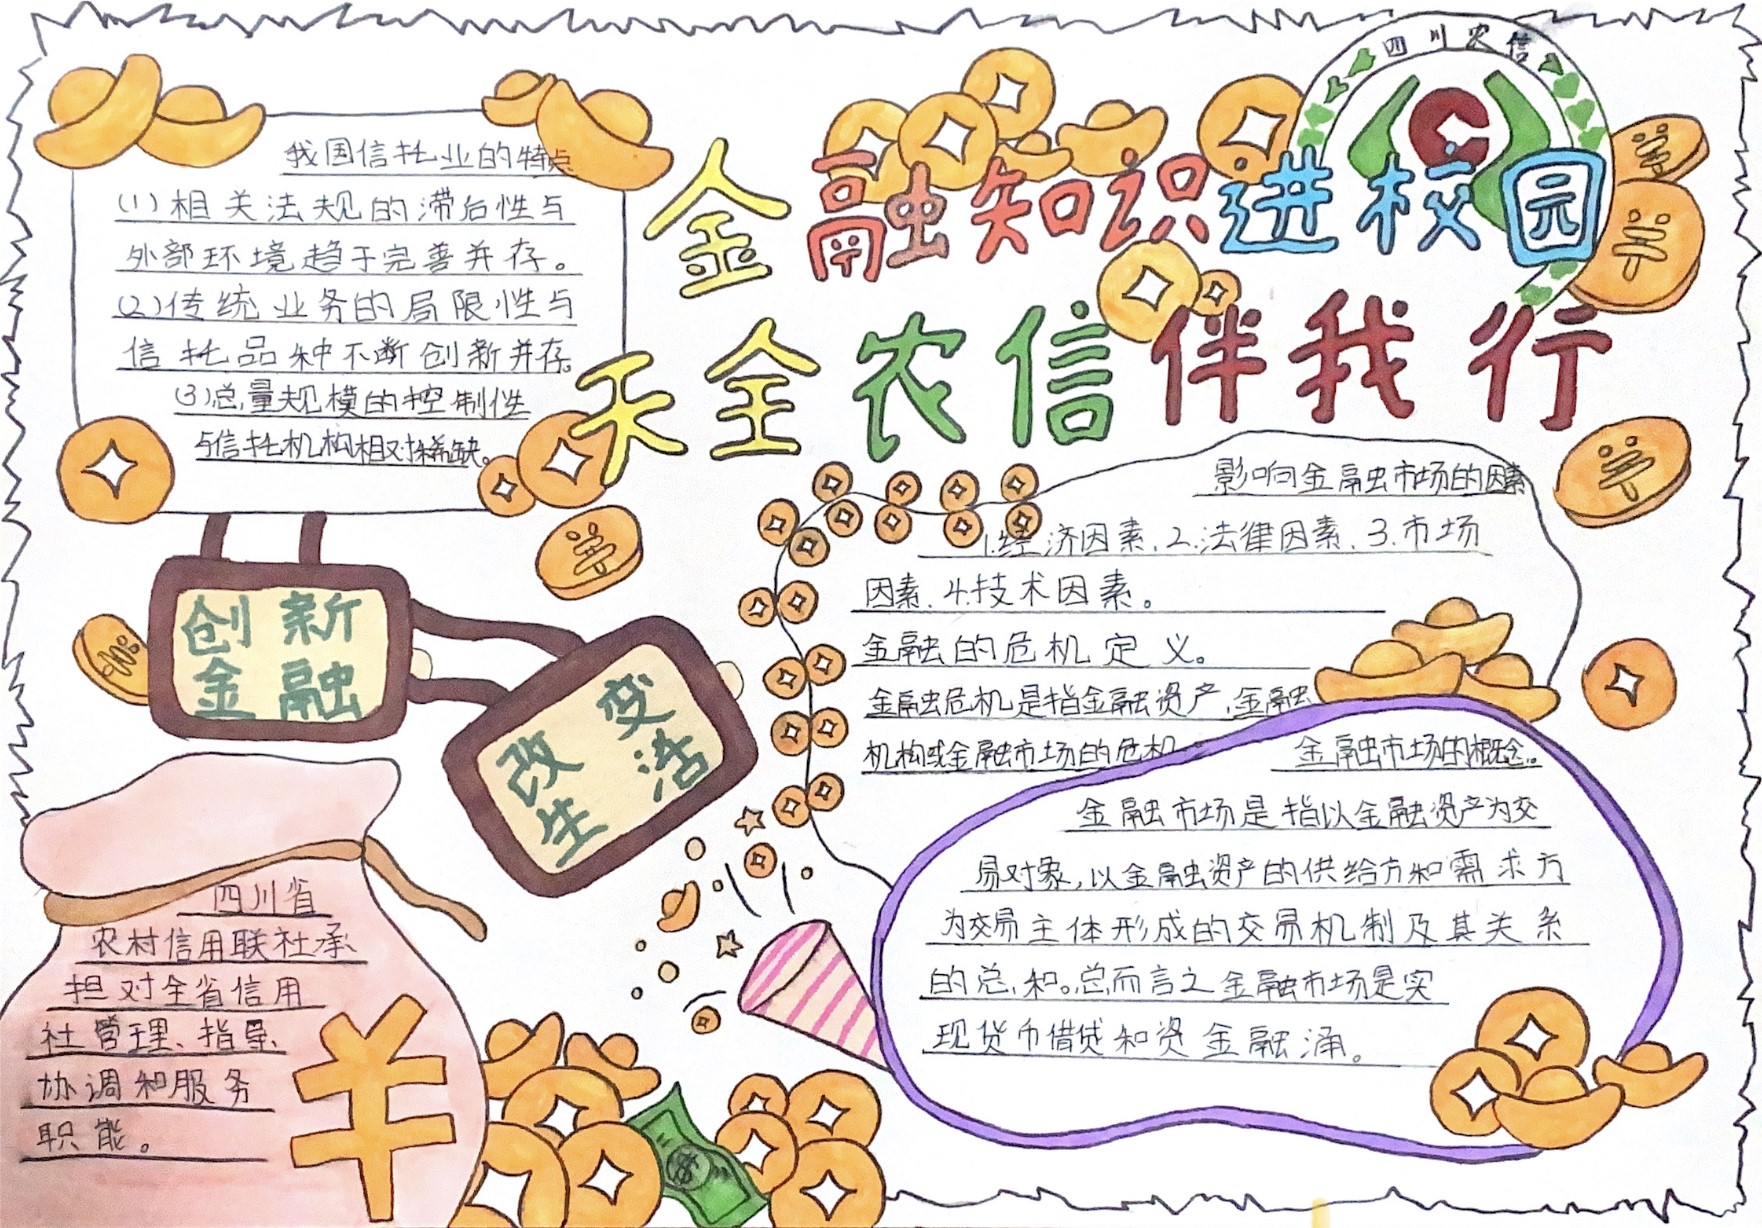 四川农信
金融知识进校园
天全农信伴我行
我国信托业的特点
(1)相关法规的滞后性与
外部环境趋于完善并存。
(2)传统业务的局限性与
信托品种不断创新并存。
(3)总量规模的控制性
与信托机构相对稀缺。
影响金融市场的因素
1.经济因素.2.法律因素.3.市场
因素.4.技术因素。
金融的危机定义。
金融危机是指金融资产,金融
机构或金融市场的危机
创新
金融
改变
生活
金融市场的概念。
金融市场是指以金融资产为交
易对象,以金融资产的供给方和需求方
为交易主体形成的交易机制及其关系
的总和。总而言之金融市场是实
现货币借贷和资金融涌。
四川省
农村信用联社承
担对全省信用
社管理、指导、
协调和服务
职能。